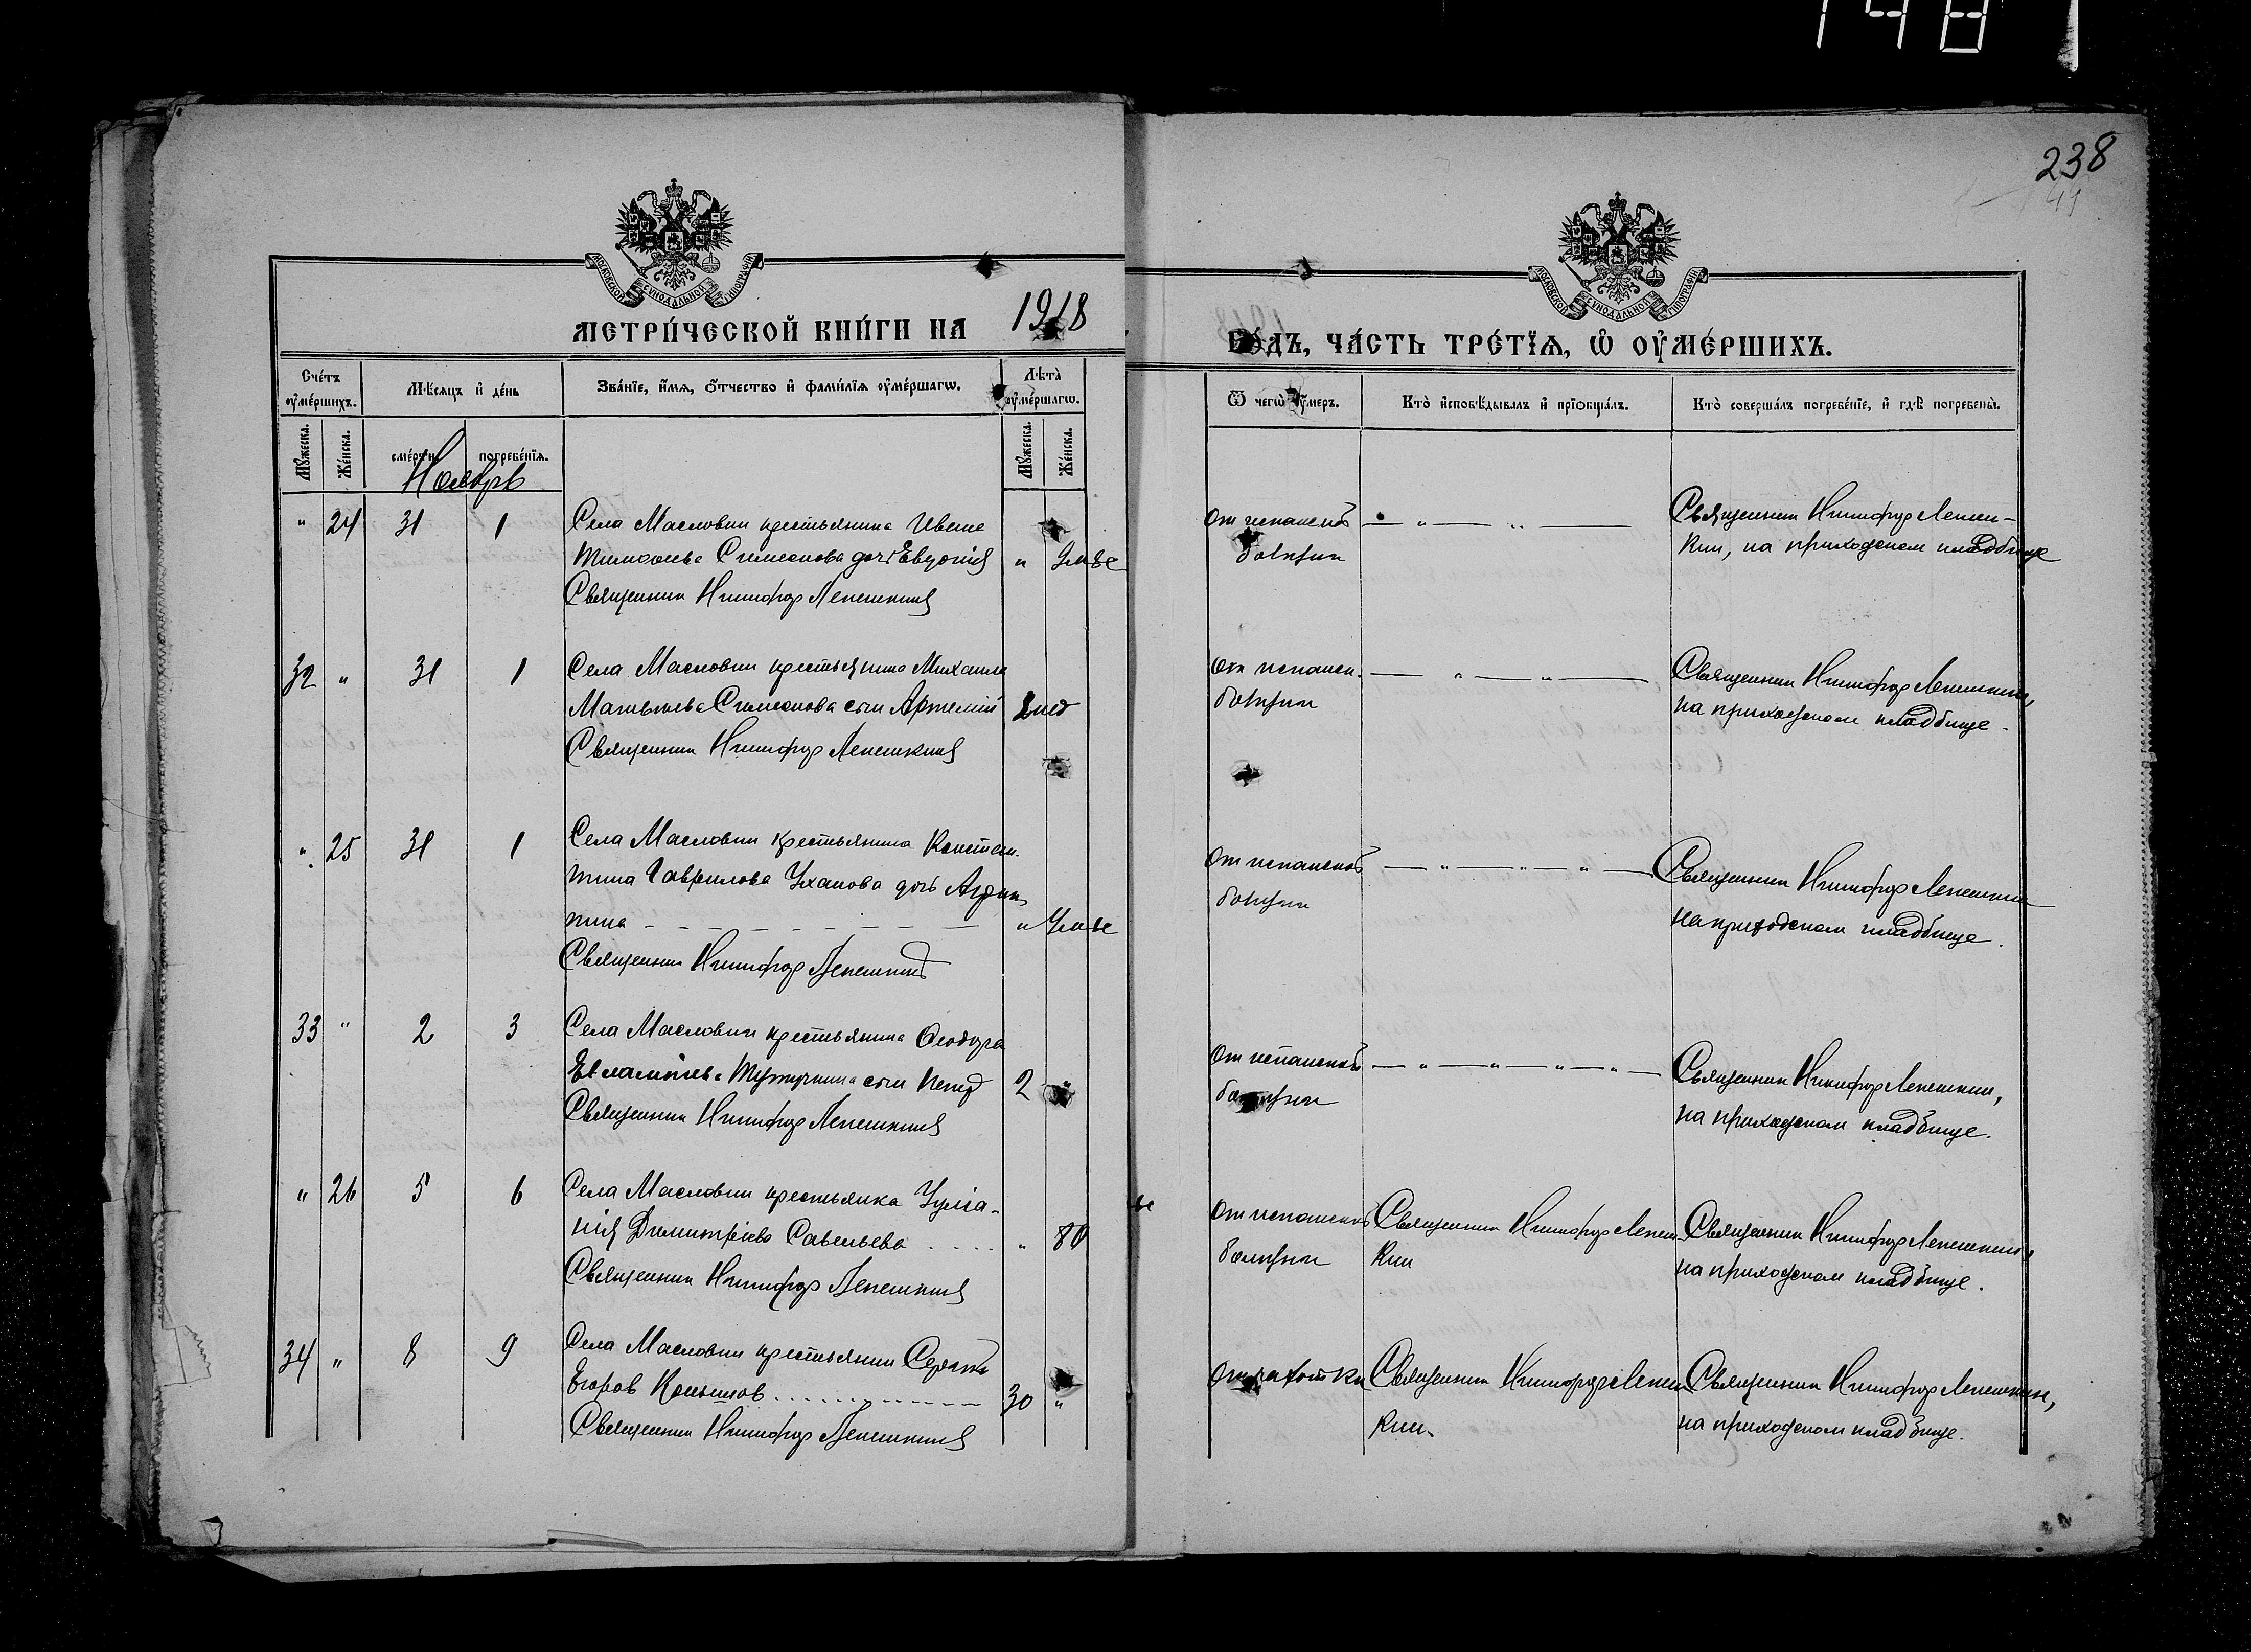 1481
238
41
МОСКОВСКОЙ СѴНОДАЛЬНОЙ ТИПОГРАФІИ
МОСКОВСКОЙ СѴНОДАЛЬНОЙ ТИПОГРАФІИ
МЕТРИ́ЧЕСКОЙ КНИ́ГИ НА 1918
ГО́ДЪ, ЧА́СТЬ ТРЕ́ТЇѦ, Ѡ҆ ОУ҆МЕ́РШИХЪ.
Сче́тъ оу҆ме́ршихъ.
Мѣ́сѧцъ и҆ де́нь
Зва́нїе, и҆́мѧ, ѻ҆́тчество и҆ фами́лїѧ оу҆ме́ршагѡ.
Лѣ́та оу҆ме́ршагѡ.
Ѿ чегѡ̀ оу҆́меръ.
Кто̀ и҆сповѣ́дывалъ и҆ прїѻбща́лъ.
Кто̀ соверша́лъ погребе́нїе, и҆ гдѣ̀ погребены̀.
Мꙋ́жеска.
Же́нска.
сме́рти.
погребе́нїѧ.
Мꙋ́жеска.
Же́нска.
Ноябрь
" 24 31 1 Села Масловки крестьянина Ивана
Тимофеева Симонова дочь Евдокія "
Священник Никифор Лепешкин
От испанской
болезни
Священник Никифор Лепеш-
кин, на приходском кладбище
32 " 31 1 Села Масловки крестьянина Михаила
Матвеева Симонова сын Артемий 2 нед
Священник Никифор Лепешкин
От испанск.
болезни
Священник Никифор Лепешкин,
на приходском кладбище.
" 25 31 1 Села Масловки крестьянина Констан-
тина Гаврилова Уханова дочь Агрип
пина "
Священник Никифор Лепешкин
От испанской
болезни
Священник Никифор Лепешкин
на приходском кладбище.
33 " 2 3 Села Масловки крестьянина Феодора
Евлампиева сын Петр 2 "
Священник Никифор Лепешкин
От испанской
болезни
Священник Никифор Лепешкин,
на приходском кладбище.
" 26 5 6 Села Масловки крестьянка Улиа-
нія Димитріева Савельева " 80
Священник Никифор Лепешкин
От испанской
болезни
Священник Никифор Лепеш
кин
Священник Никифор Лепешкин,
на приходском кладбище.
34 " 8 9 Села Масловки крестьянин
Егоров 30 "
Священник Никифор Лепешкин
От чахотки
Священник Никифор Лепеш
кин.
Священник Никифор Лепешкин,
на приходском кладбище.